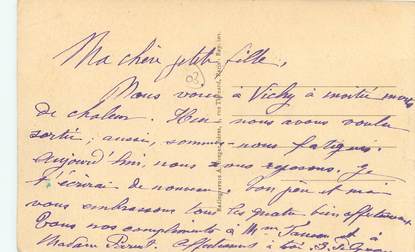 Ma chère petite fille,
(03)
Nous voici à Vichy à moitié morts
de chaleur. Hier nous avons voulu
sortir; aussi, sommes-nous fatigués.
Aujourd'hui, nous nous reposons. Je
t'écrirai de nouveau. Ton père et moi
vous embrassons tous les quatre bien affectueusement
Tous nos compliments à Mme et à
Madame Affectueusement à toi.